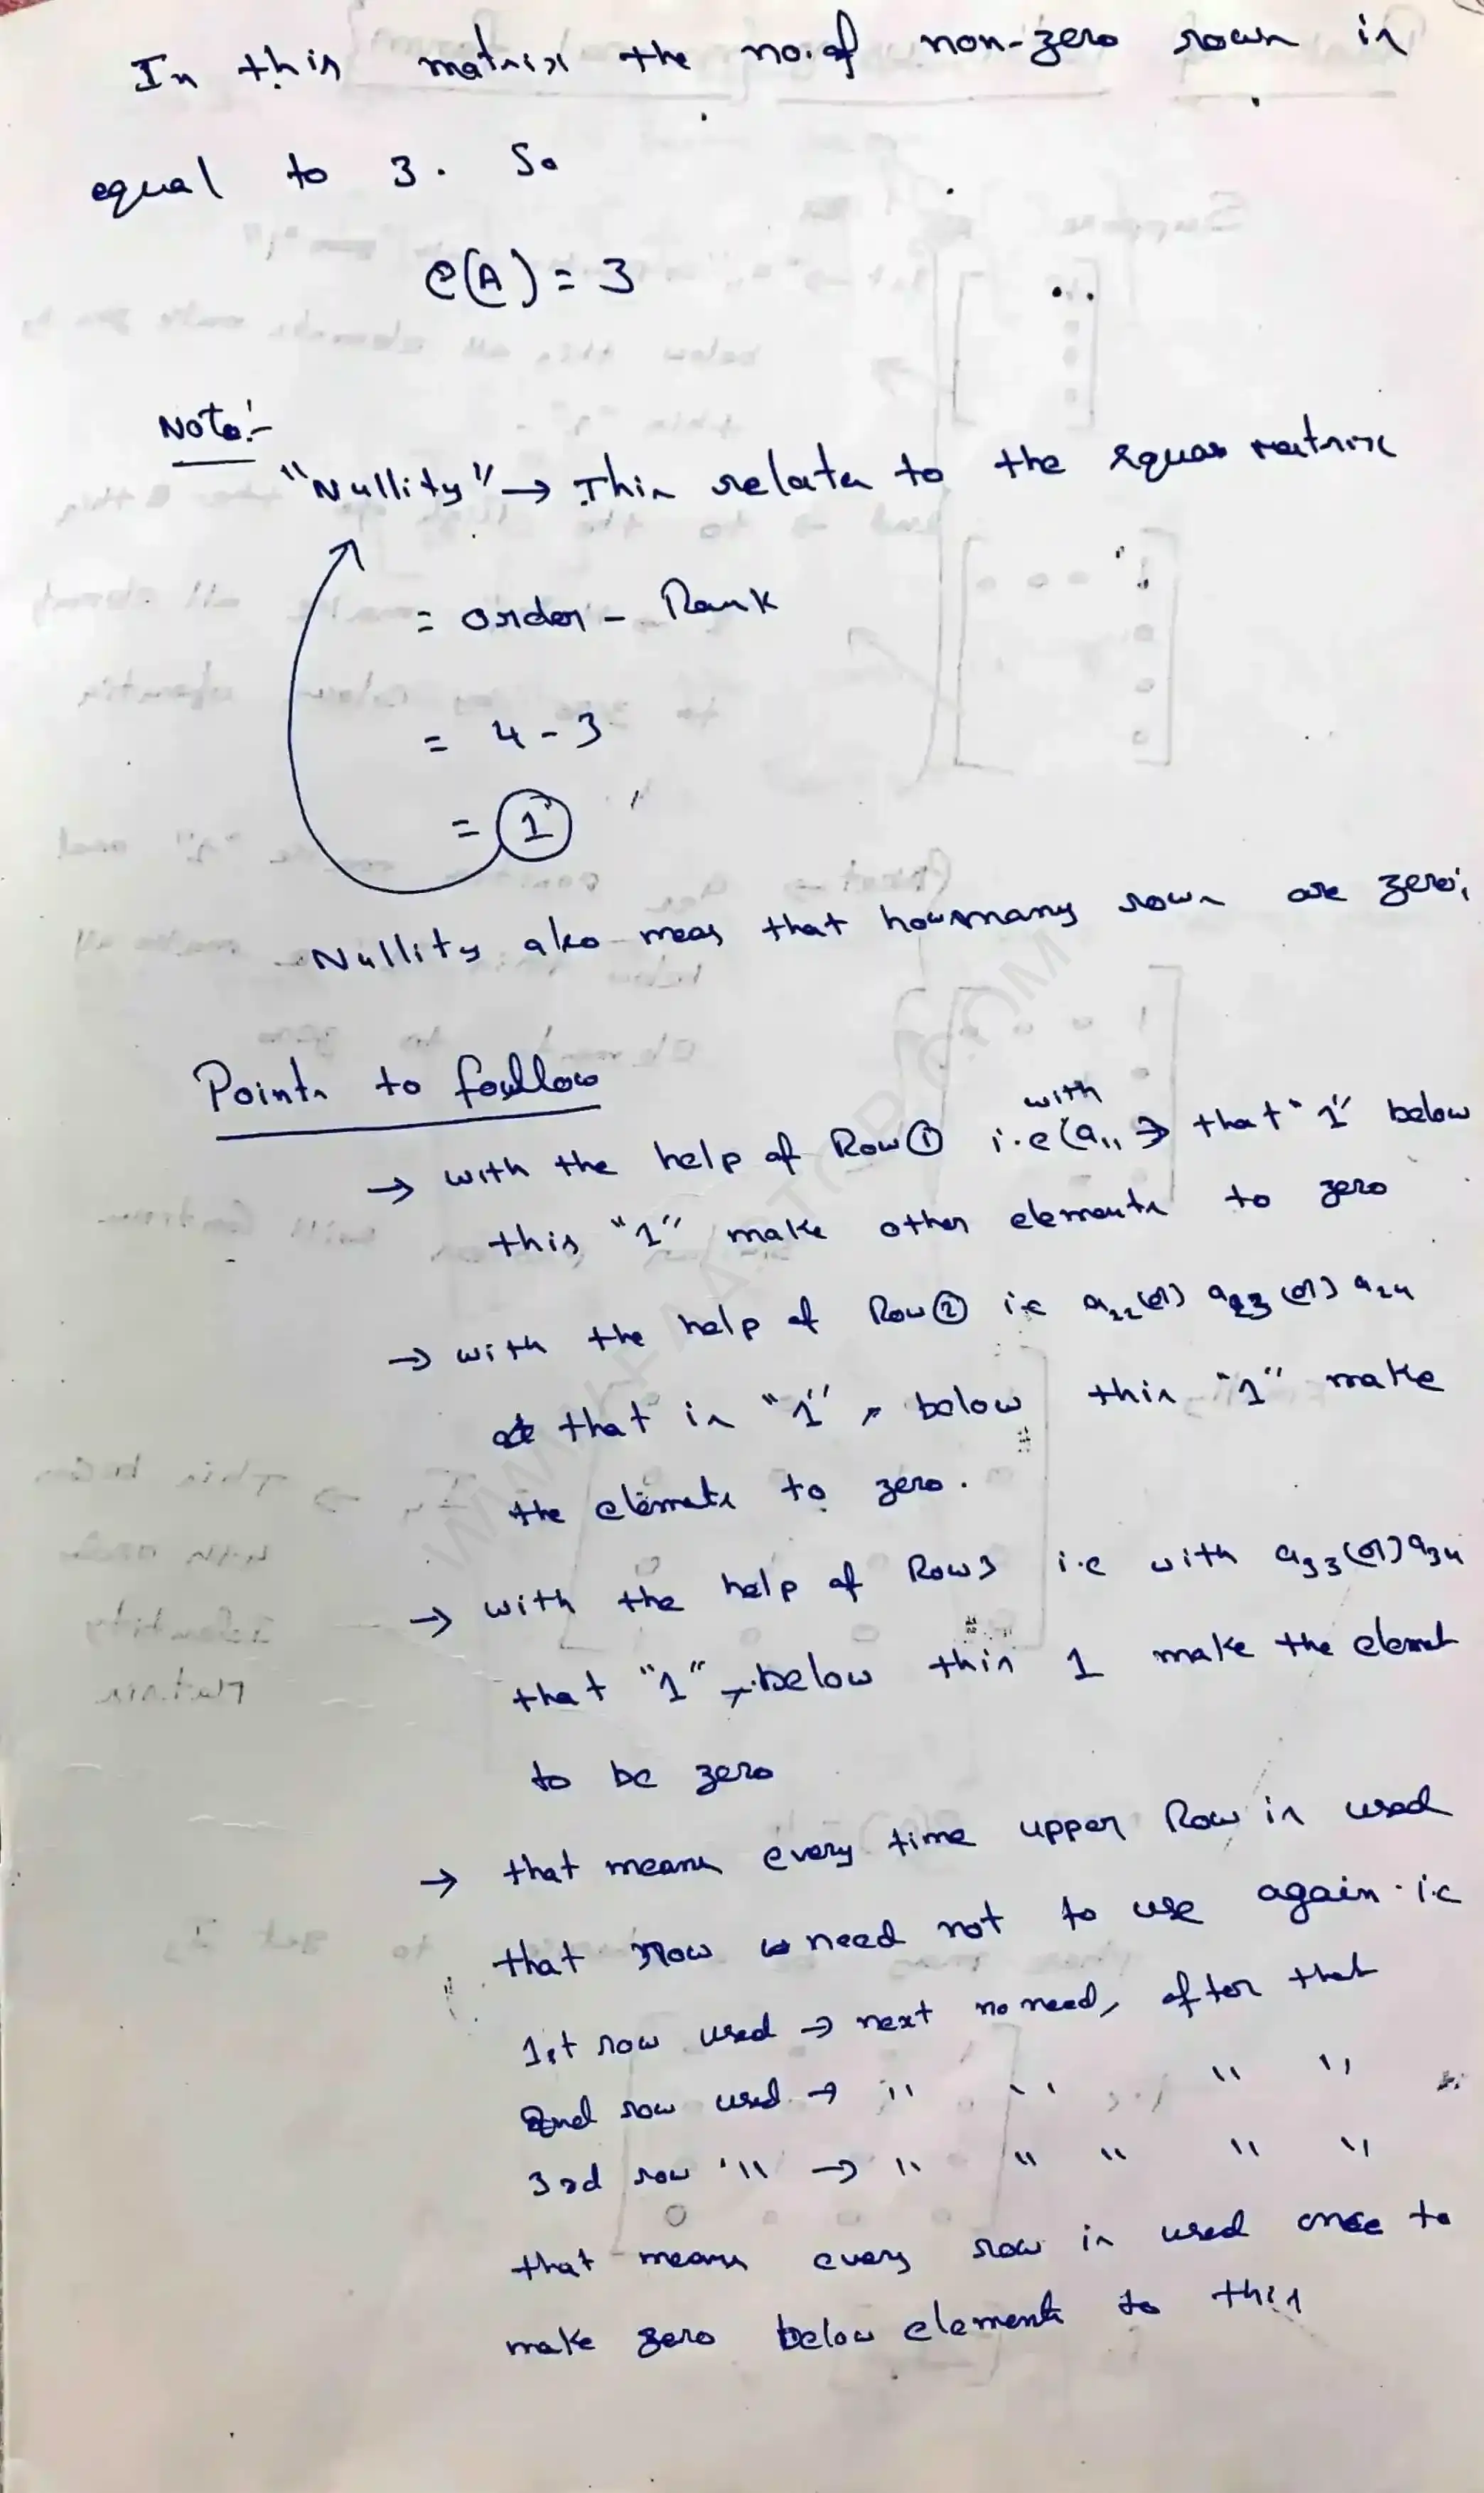 In this matrix the no. of non-zero rows is
equal to 3. So
ρ(A) = 3
Note:-
"Nullity" → This relates to the square matrix
= order - Rank
= 4 - 3
= 1
Nullity also meas that howmany rows are zero;
Points to follow
→ with the help of Row ① i.e (with a₁₁ → that "1" below
this "1" make other elements to zero
→ with the help of Row ② i.e a₂₂ (or) a₂₃ (or) a₂₄
that is "1", below this "1" make
the elemets to zero.
→ with the help of Row 3 i.e with a₃₃ (or) a₃₄
that "1", below this 1 make the elemet
to be zero
→ that means every time upper Row is used
that row need not to use again. i.e
1st row used → next no need, after that
2nd row used → " " " "
3rd row " → " " " " "
that means every row is used once to
make zero below elements to this
WWW.FAASTOP.COM